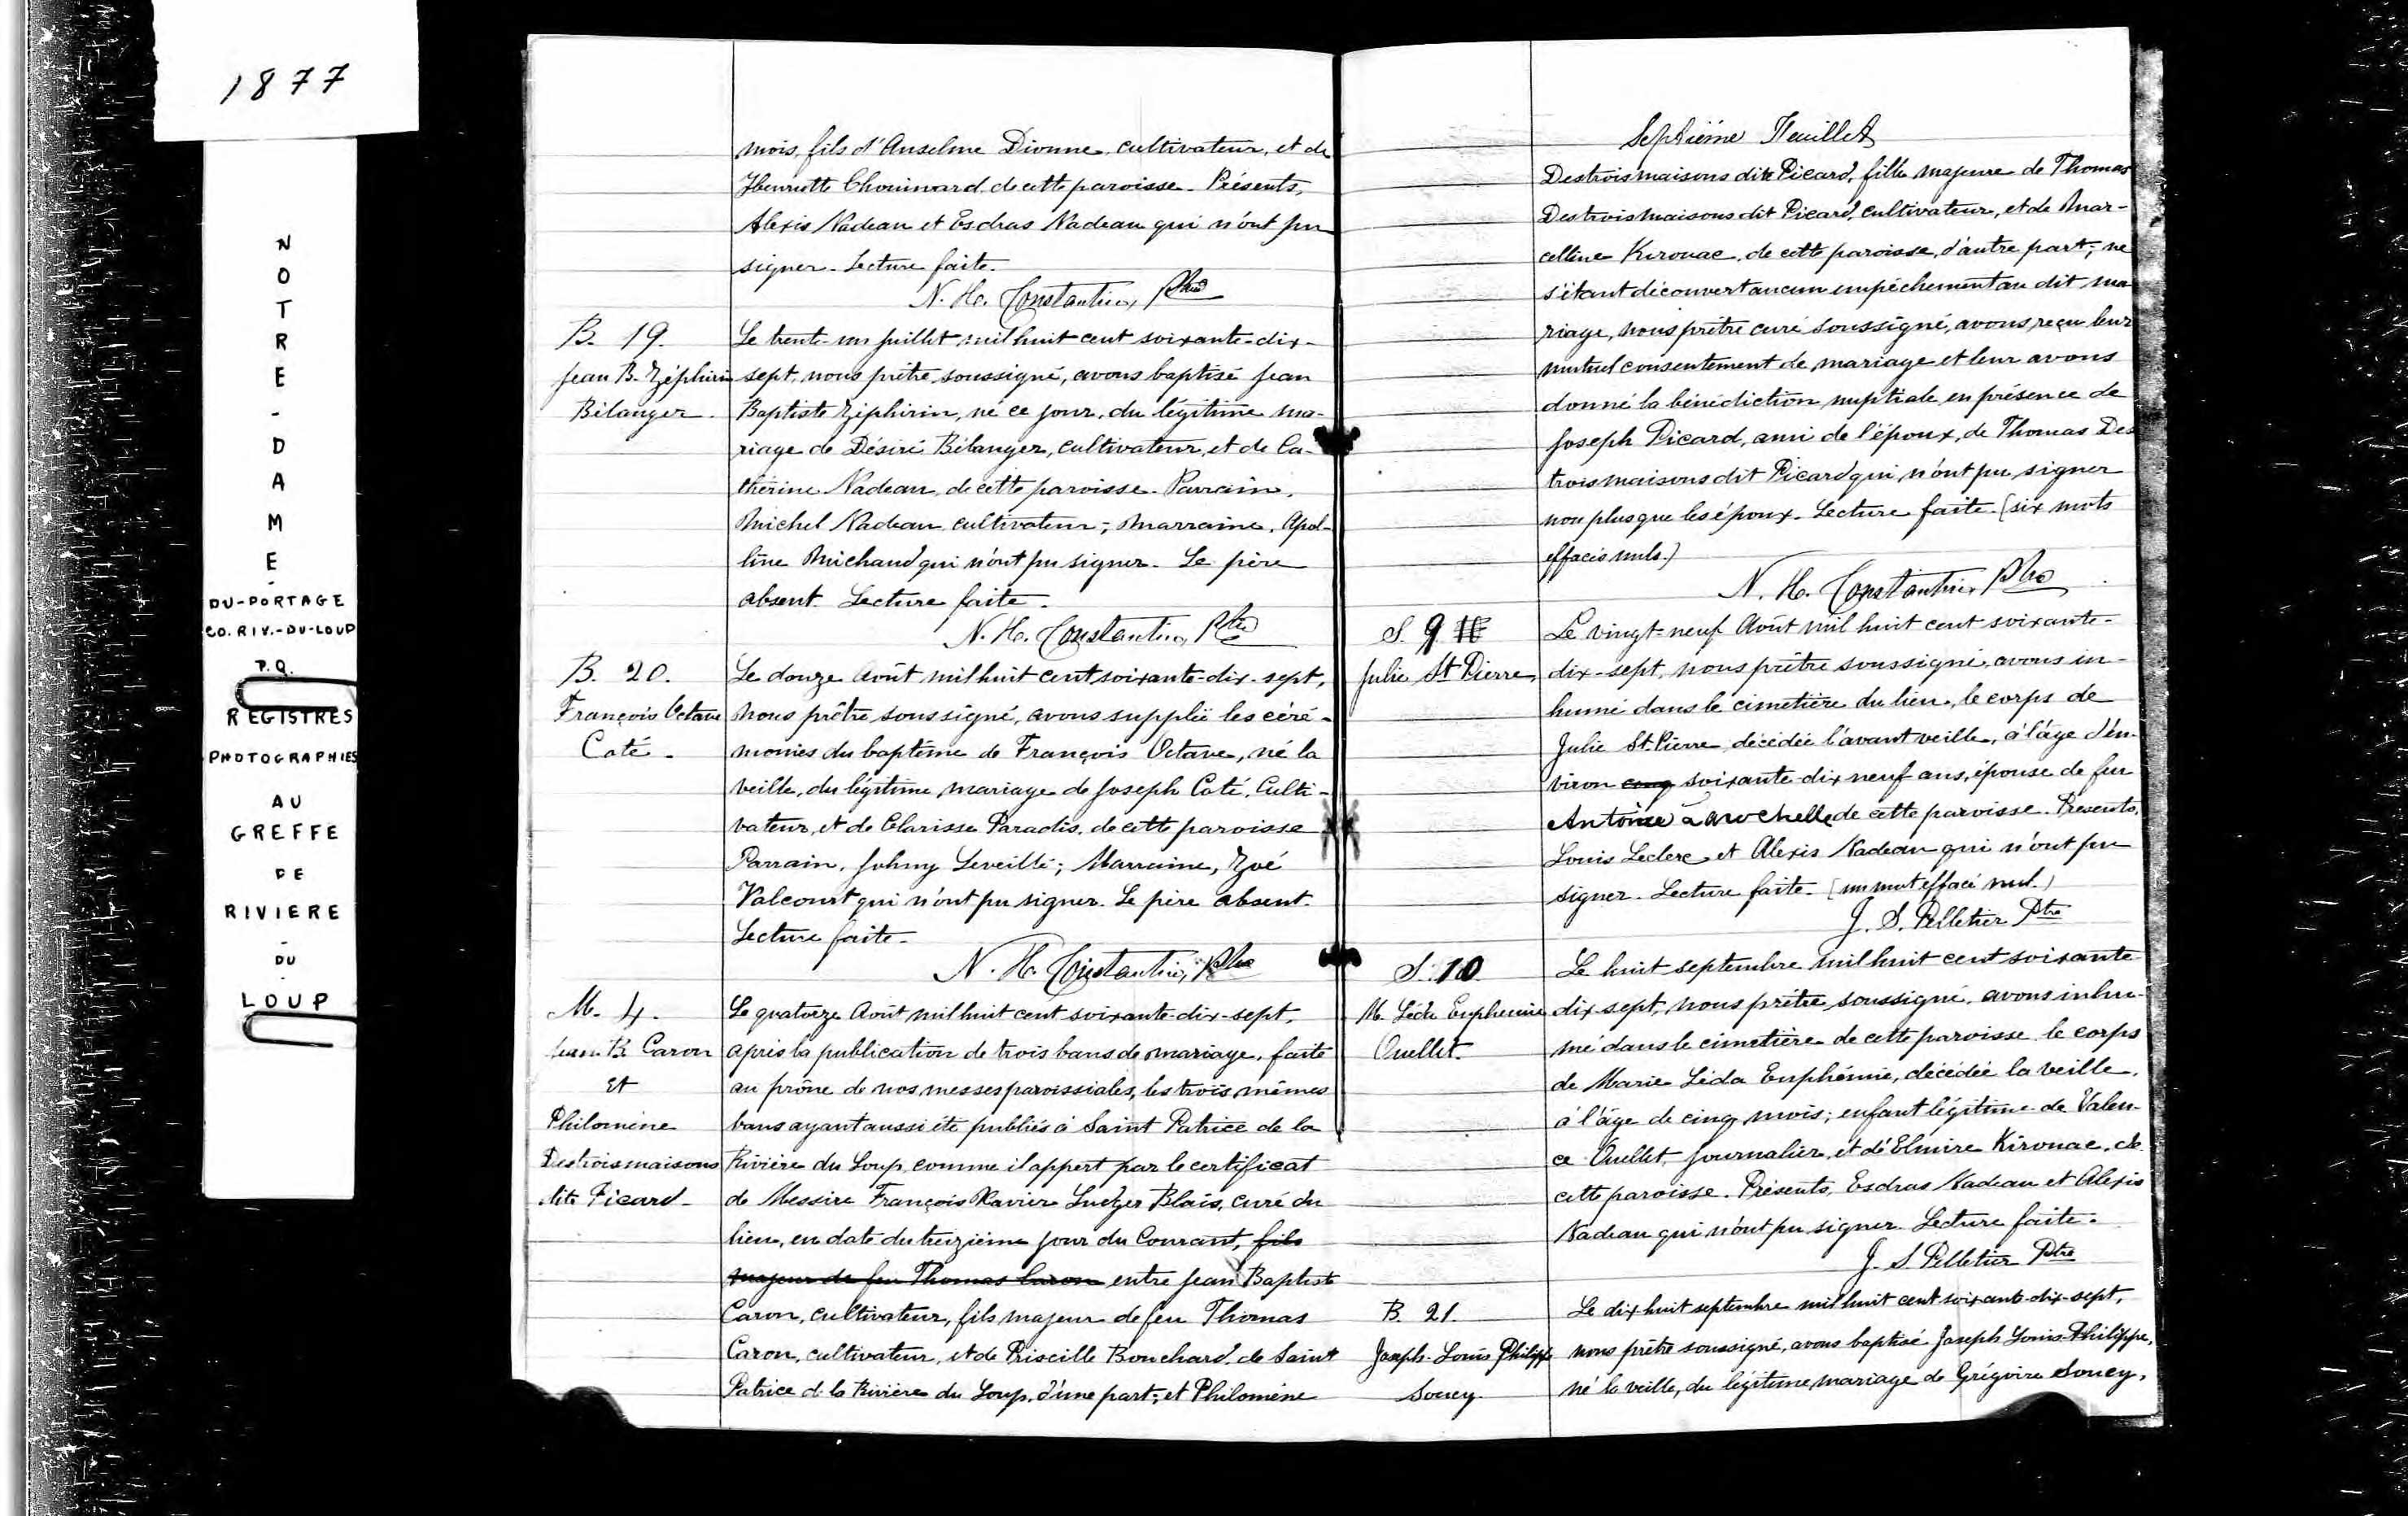 1877
NOTRE-DAME-
DU-PORTAGE
CO. RIV.-DU-LOUP
P.Q.
REGISTRES
PHOTOGRAPHIES
AU
GREFFE
DE
RIVIERE
-
DU
-
LOUP
mois, fils d'Anselme Dionne, cultivateur, et de
Henriette Chouinard, de cette paroisse. Présents,
Alexis Nadeau et Esdras Nadeau qui n'ont pu
signer. Lecture faite.
N. H. Constantin, Ptre
B. 19.
Jean B. Zéphirin
Bélanger.
Le trente-un juillet mil huit cent soixante-dix-
sept, nous prêtre soussigné, avons baptisé Jean
Baptiste Zéphirin, né ce jour, du légitime ma-
riage de Désiré Bélanger, cultivateur, et de Ca-
thérine Nadeau, de cette paroisse. Parrain,
Michel Nadeau cultivateur; Marraine, Apol-
line Michaud qui n'ont pu signer. Le père
absent. Lecture faite.
N. H. Constantin, Ptre
B. 20.
François Octave
Coté.
Le douze Août mil huit cent soixante-dix-sept,
nous prêtre soussigné, avons supplié les céré-
monies du baptême de François Octave, né la
veille, du légitime mariage de Joseph Coté, Culti-
vateur, et de Clarisse Paradis, de cette paroisse
Parrain, Johny Leveillé; Marraine, Zoé
Valcourt qui n'ont pu signer. Le père absent.
Lecture faite.
N. H. Constantin, Ptre
M. 4.
Jean B. Caron
et
Philomène
Destroismaisons
dite Picard
Le quatorze Août mil huit cent soixante-dix-sept,
après la publication de trois bans de mariage, faite
au prône de nos messes paroissiales, les trois mêmes
bans ayant aussi été publiés à Saint Patrice de la
Rivière du Loup, comme il appert par le certificat
de Messire François Xavier Ludger Blais, curé du
lieu, en date du treizième jour du Courant, fils
majeur de feu Thomas Caron entre Jean Baptiste
Caron, cultivateur, fils majeur de feu Thomas
Caron, cultivateur, et de Priscille Bouchard, de Saint
Patrice de la Rivière du Loup, d'une part; et Philomène
Septième Feuillet
Destroismaisons dite Picard, fille majeure de Thomas
Destroismaisons dit Picard, cultivateur, et de Mar-
celline Kirouac, de cette paroisse, d'autre part; ne
s'étant découvert aucun empêchement au dit ma
riage, nous prêtre curé soussigné, avons reçu leur
mutuel consentement de mariage et leur avons
donné la bénédiction nuptiale en présence de
Joseph Picard, ami de l'époux, de Thomas Des
troismaisons dit Picard qui n'ont pu signer
non plus que les époux. Lecture faite. (six mots
effacés nuls.)
N. H. Constantin, Ptre
S. 9
Julie St Pierre
Le vingt-neuf Août mil huit cent soixante-
dix-sept, nous prêtre soussigné, avons in-
humé dans le cimetière du lieu, le corps de
Julie St. Pierre décédée l'avant veille, à l'âge d'en-
viron cinq soixante-dix neuf ans, épouse de feu
Antoine Larochelle de cette paroisse. Présents,
Louis Leclerc et Alexis Nadeau qui n'ont pu
signer. Lecture faite. (un mot effacé nul.)
J. S. Pelletier Ptre
S. 10
M. Léda Euphémie
Ouellet.
Le huit septembre mil huit cent soixante
dix-sept, nous prêtre soussigné, avons inhu-
mé dans le cimetière de cette paroisse le corps
de Marie Léda Euphémie, décédée la veille,
à l'âge de cinq mois; enfant légitime de Valen-
ce Ouellet, Journalier, et d'Elmire Kirouac, de
cette paroisse. Présents, Esdras Nadeau et Alexis
Nadeau qui n'ont pu signer. Lecture faite.
J. S Pelletier Ptre
B. 21.
Joseph-Louis Philippe
Soucy
Le dix huit septembre mil huit cent soixante-dix-sept,
nous prêtre soussigné, avons baptisé Joseph Louis-Philippe,
né la veille, du légitime mariage de Grégoire Soucy,